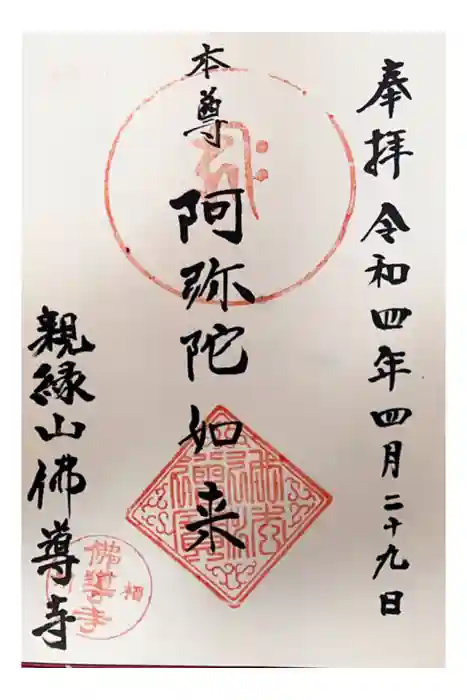 奉拝 令和四年四月二十九日
本尊 阿弥陀如来
親縁山佛導寺
佛導寺
相